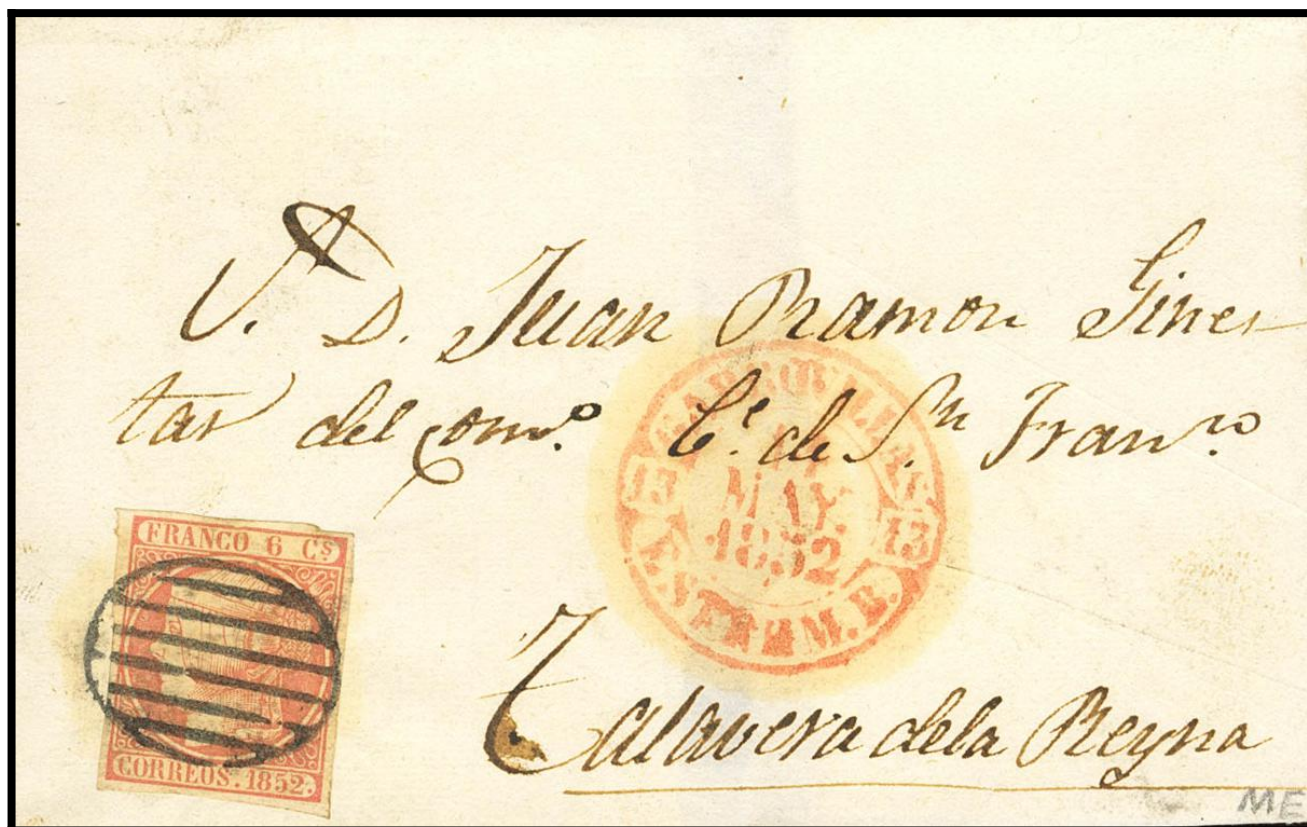 S. D. Juan Ramon Gines
tar del com.º C.e de S.n Fran.co
GARROBILLAS
MAY.
1852
13 13
ESTREM. B.
FRANCO 6 Cs
CORREOS. 1852.
Talavera dela Reyna
ME